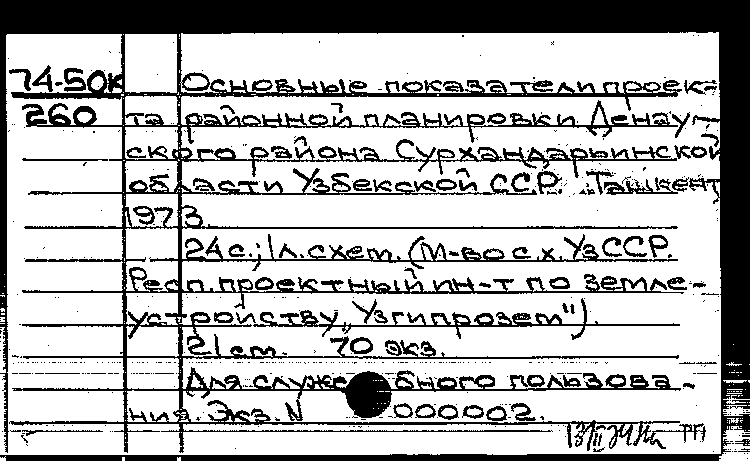 74-50к Основные показатели проек-
260 та районной планировки Денау-
ского района Сурхандарьинской
области Узбекской ССР. Ташкент,
1973.
24 с.; 1 л. схем. (М-во с.х. УзССР.
Респ. проектный ин-т по земле-
устройству „Узгипрозем").
21 см. 70 экз.
Для служебного пользова-
ния. Экз. N 000002.
РП